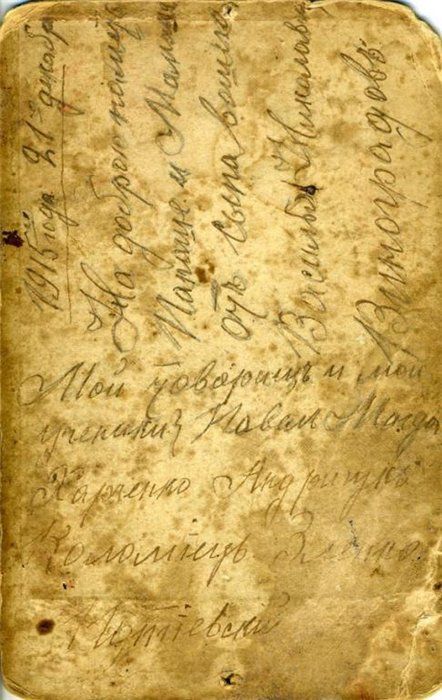 1915 года 21 декабр
На добрую памят
Папаше и Мамаш
отъ сына вашего
Василья Николаев
Виноградовъ
Мой товарищъ и мои
ученики Коваль
Харченко Андрищукъ
Коломіецъ Зленко